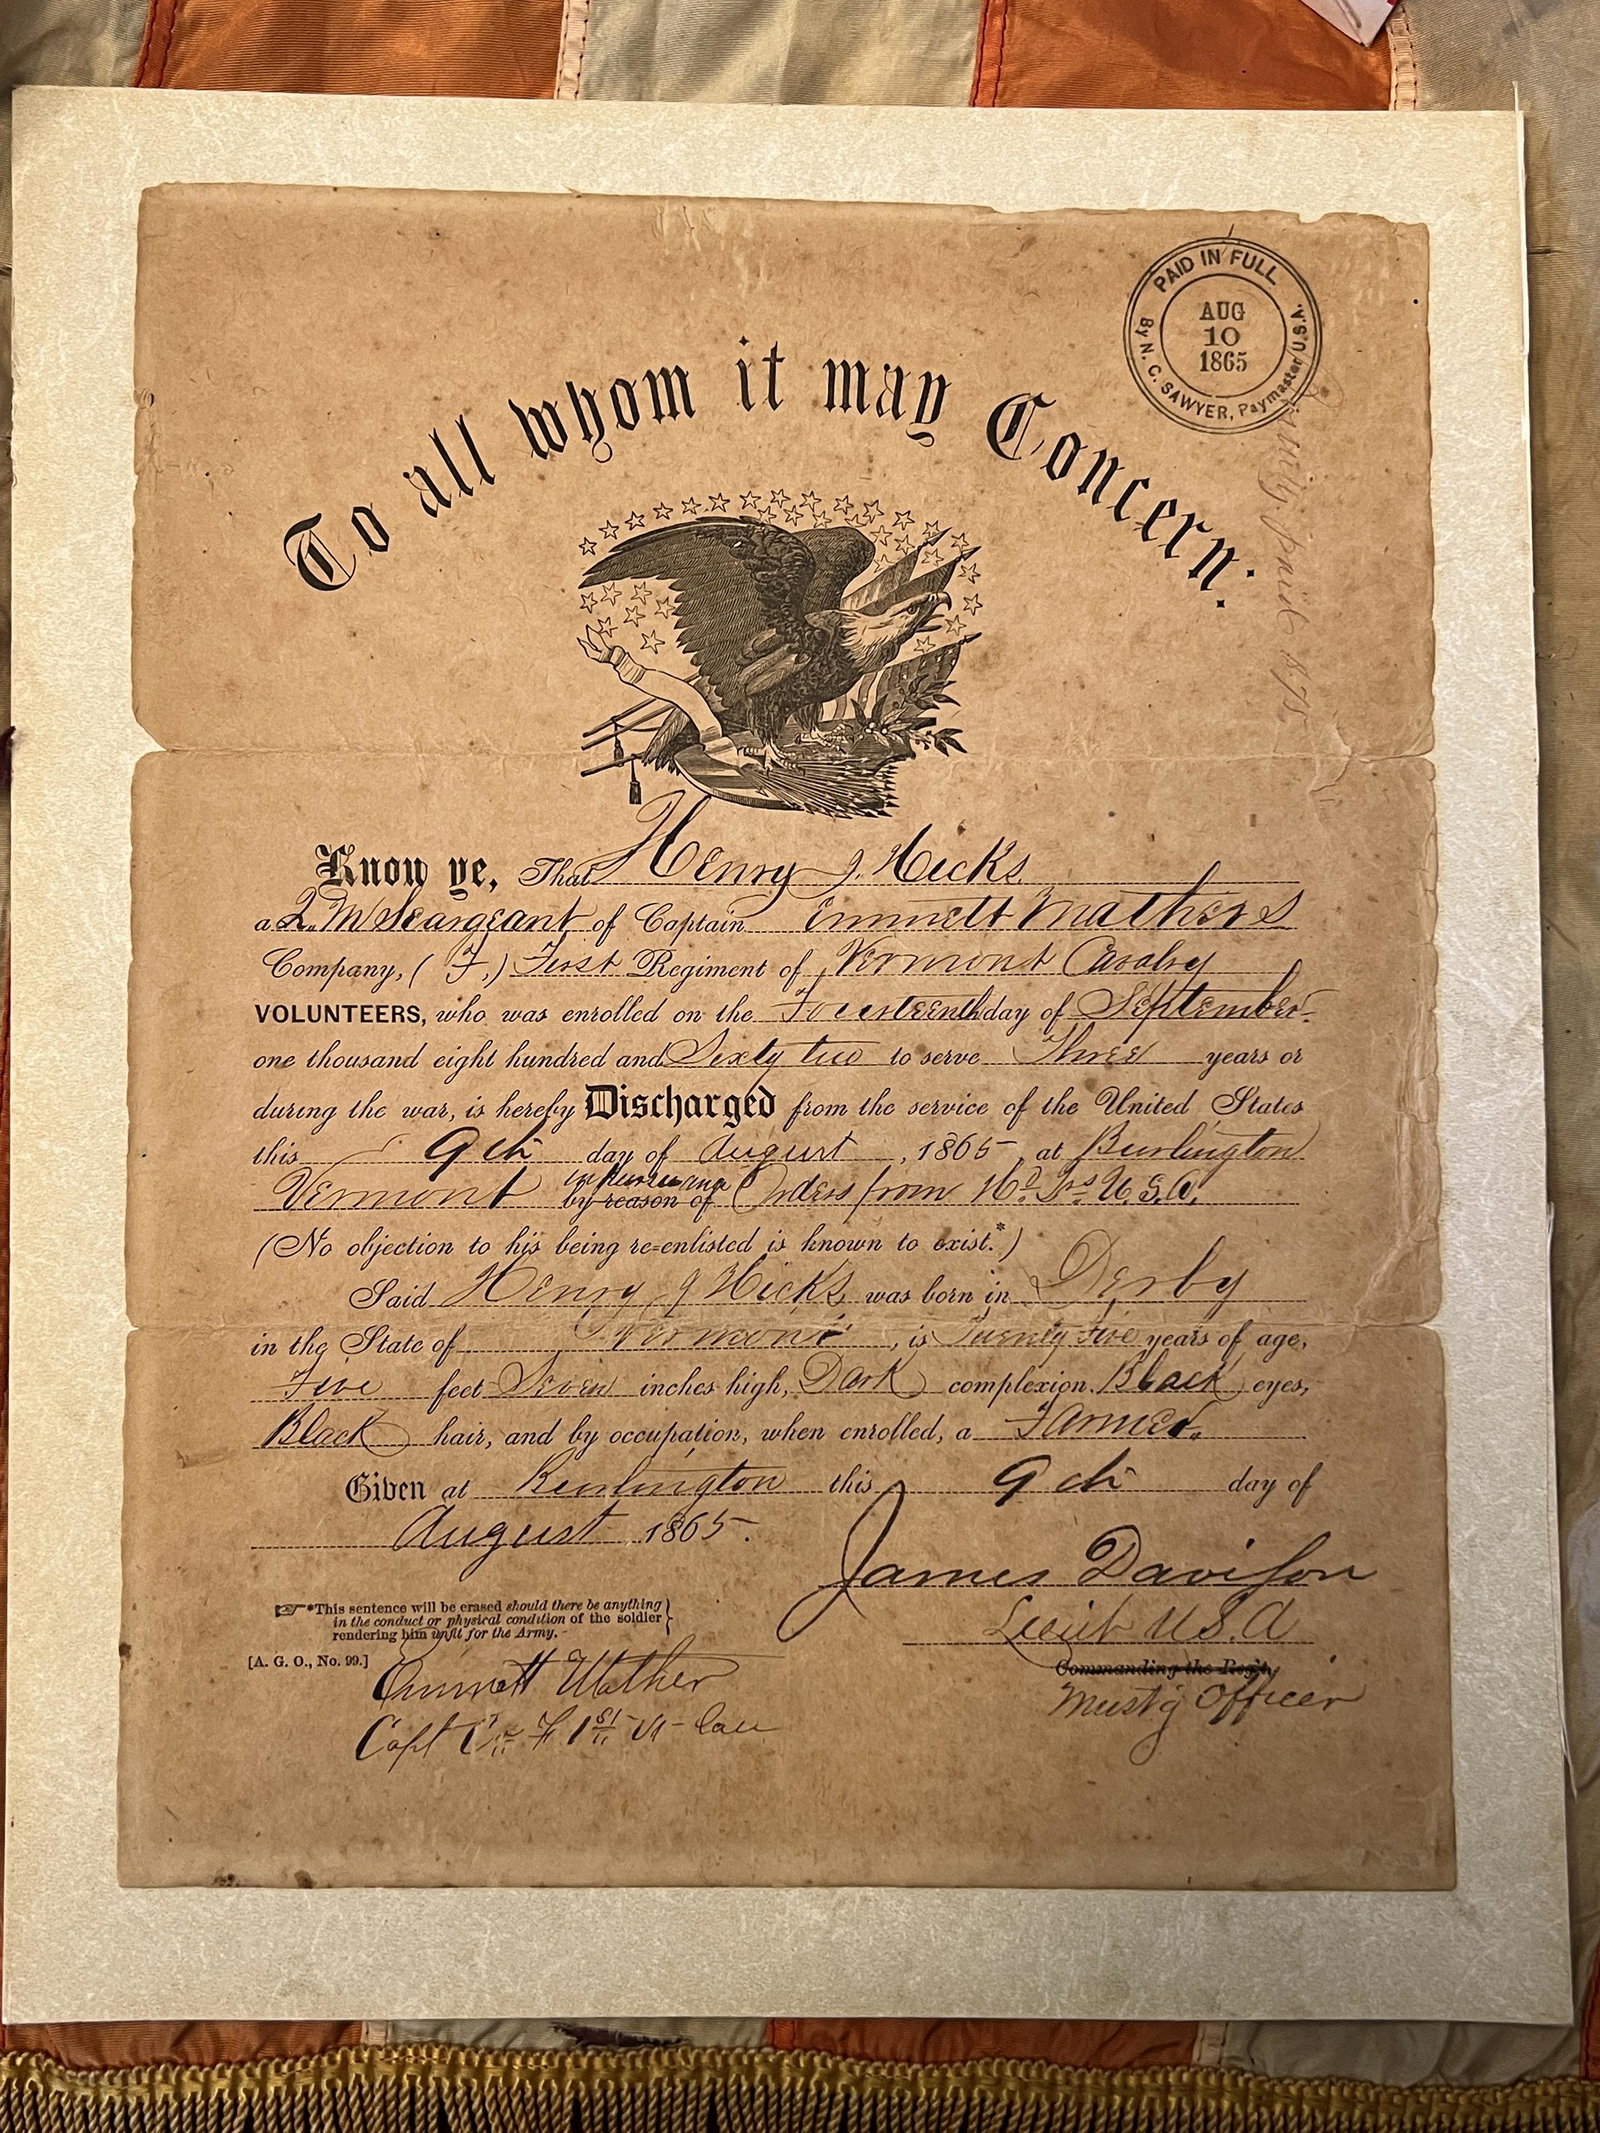 PAID IN FULL
By N. C. SAWYER, Paymaster U.S.A.
AUG
10
1865
To all whom it may Concern:
paid 1875
Know ye, That Henry J. Hicks
a Q. M Seargeant of Captain Emmett Mathers
Company, (F,) First Regiment of Vermont Cavalry
VOLUNTEERS, who was enrolled on the Fourteenth day of September
one thousand eight hundred and Sixty two to serve Three years or
during the war, is hereby Discharged from the service of the United States
this 9th day of August, 1865, at Burlington
Vermont by reason of Orders from Hd Qrs U.S.A.
(No objection to his being re-enlisted is known to exist.*)
Said Henry J Hicks was born in Derby
in the State of Vermont, is Twenty Five years of age,
Five feet Seven inches high, Dark complexion, Black eyes,
Black hair, and by occupation, when enrolled, a Farmer.
Given at Burlington this 9th day of
August 1865.
James Davison
Lieut U.S.A
Commanding the Reg't
Must'g Officer
*This sentence will be erased should there be anything
in the conduct or physical condition of the soldier
rendering him unfit for the Army.
[A. G. O., No. 99.]
Emmett Mather
Capt Co F 1st Vt Cav